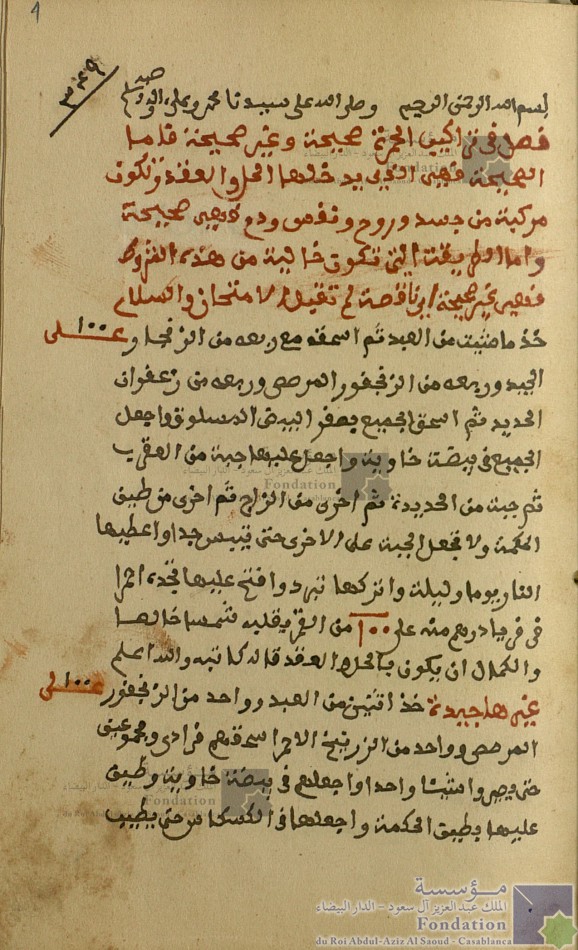 1
349
بسم الله الرحمن الرحيم وصلى الله على سيدنا محمد وعلى اله وصحبه وسلم
فصل في تراكيب المجربة صحيحة وغير صحيحة فاما
الصحيحة فهي التي يدخلها الحل والعقد وتكون
مركبة من جسد وروح ونفس ودم فهي صحيحة
واما الطريقة التي تكون خالية من هذه الشروط
فهي غير صحيحة اي ناقصة لم تقبل الامتحان والسلام
خذ ما شئت من العبد ثم اسحقه مع ربعه من الزنجار وعلى ١٠٠
الجيد وربعه من الزنجفور الرصصي وربعه من زعفران
الحديد ثم اسحق الجميع بصفر البيض المسلوق واجعل
الجميع في بيضة خاوية واجعل عليها جبة من العقرب
ثم جبة من الحديدة ثم اخرى من الزاج ثم اخرى من طين
الحكمة ولا تجعل الجبة على الاخرى حتى تيبس جدا واعطيها
النار يوما وليلة واتركها تبرد وافتح عليها تجده احمرا
فرفريا درهم منه على ١٠٠ من القمر يقلبه شمسا خالصا
والكمال ان يكون بالحل والعقد قاله كاتبه والله اعلم
غيرها جيدة خذ اثنين من العبد وواحد من الزنجفور على ١٠٠
الرصصي وواحد من الزرنيخ الاحمر اسحقهم فرادى ومجموعين
حتى يصيروا شيئا واحدا واجعلهم في بيضة خاوية وطين
عليها بطين الحكمة واجعلها في الكسكاس حتى يطيب
مؤسسة
الملك عبد العزيز آل سعود - الدار البيضاء
Fondation
du Roi Abdul-Aziz Al Saoud - Casablanca